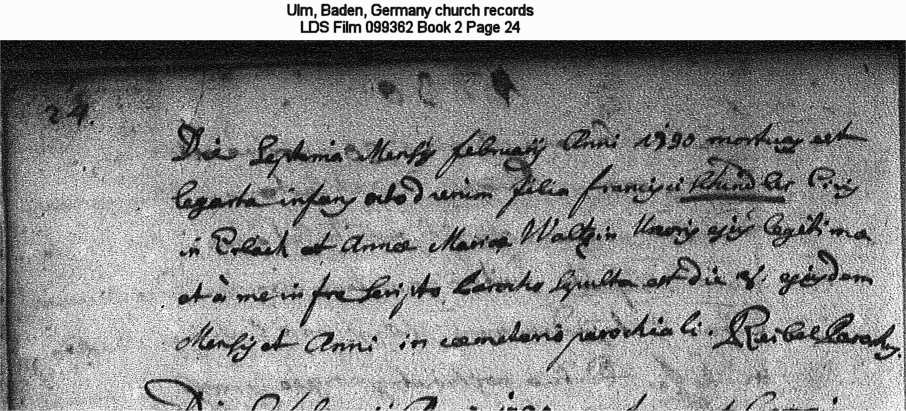 Ulm, Baden, Germany church records
LDS Film 099362 Book 2 Page 24
24.
Die Septima Mensis februarij Anni 1790 mortua est
infans octo dierum filia francisci Schindler Civis
in Erlach et Annæ Mariæ Waltzin Uxoris ejus legitima
et à me infra scripto Parocho sepulta est die 8. ejusdem
Mensis et Anni in cœmeterio parochiali. Reibel Parochus.